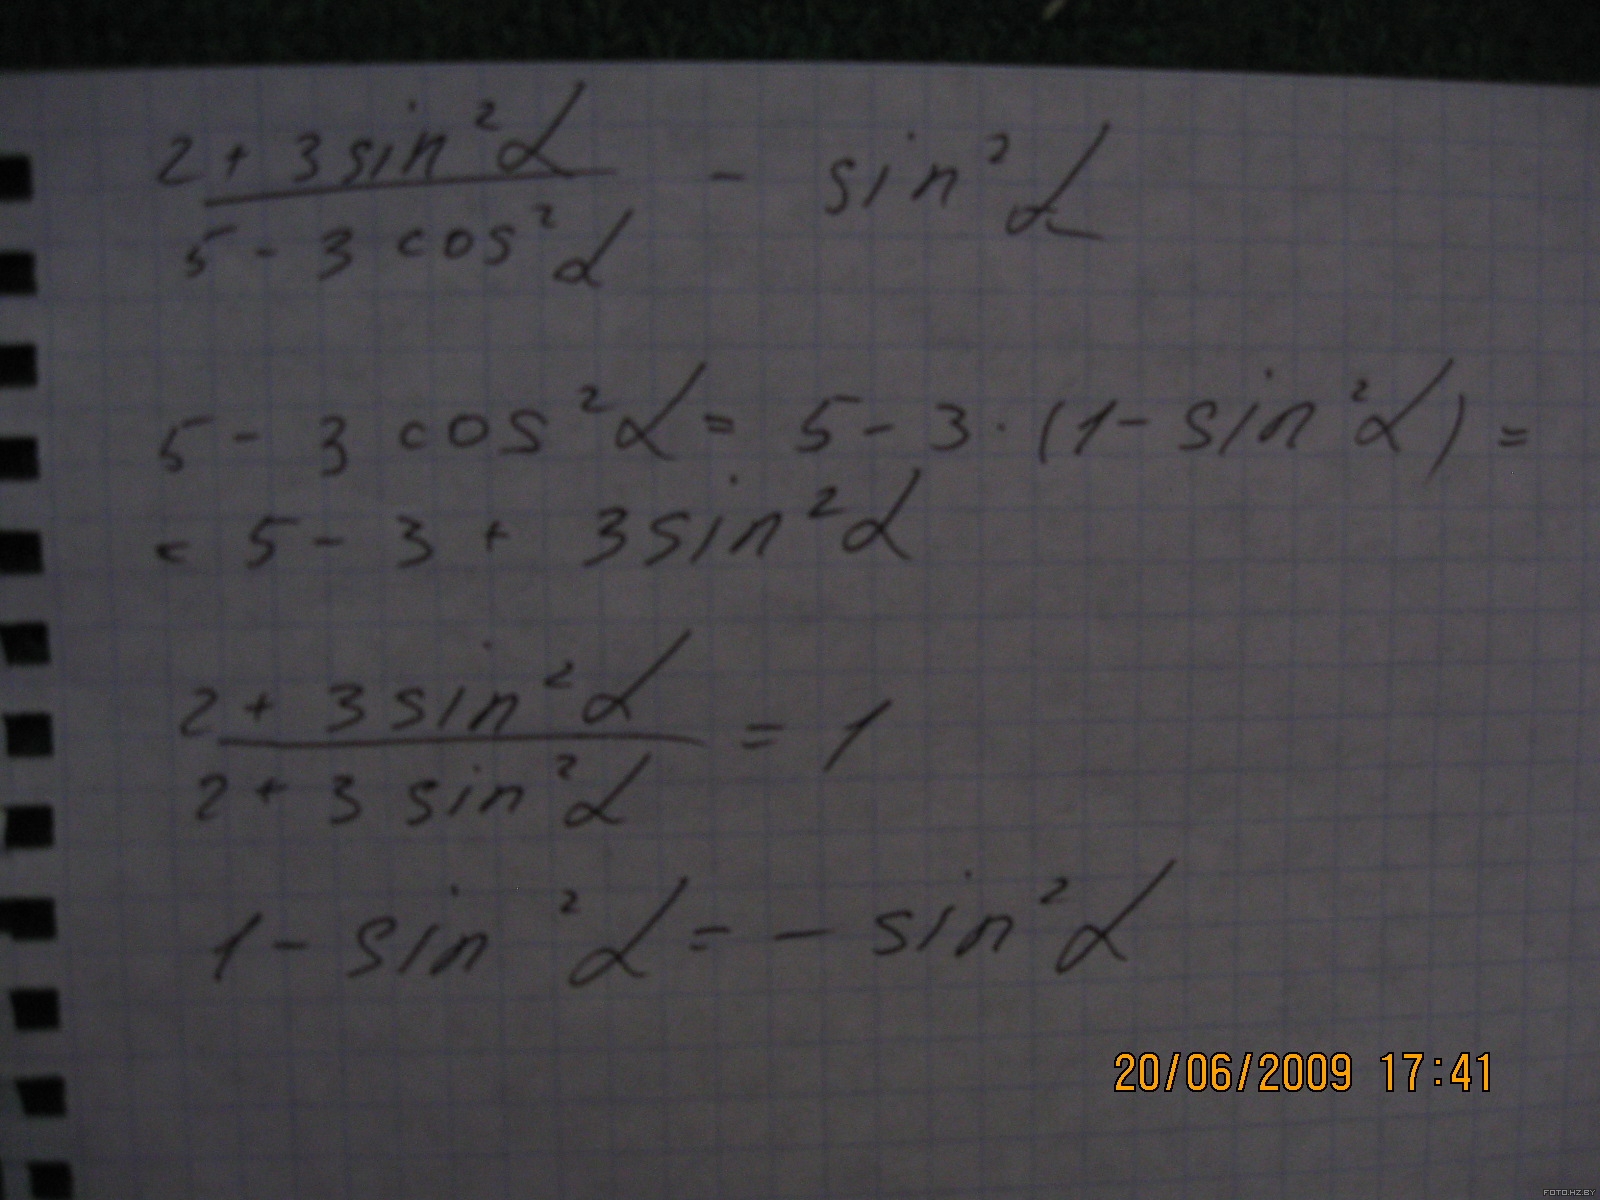 2 + 3 sin²α
――――――― - sin²α
5 - 3 cos²α
5 - 3 cos²α = 5 - 3 · (1 - sin²α) =
= 5 - 3 + 3 sin²α
2 + 3 sin²α
――――――― = 1
2 + 3 sin²α
1 - sin²α = - sin²α
20/06/2009 17:41
FOTO.HZ.BY